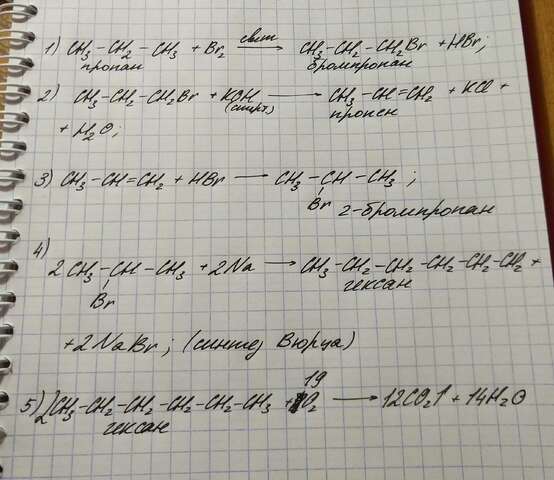 1) CH₃-CH₂-CH₃ + Br₂ —свет→ CH₃-CH₂-CH₂Br + HBr;
пропан бромпропан
2) CH₃-CH₂-CH₂Br + KOH (спирт) → CH₃-CH=CH₂ + KCl +
пропен
+ H₂O;
3) CH₃-CH=CH₂ + HBr → CH₃-CH-CH₃;
Br 2-бромпропан
4)
2CH₃-CH-CH₃ + 2Na → CH₃-CH₂-CH₂-CH₂-CH₂-CH₂ +
Br гексан
+2NaBr; (синтез Вюрца)
19
5) 2CH₃-CH₂-CH₂-CH₂-CH₂-CH₃ + O₂ → 12CO₂↑ + 14H₂O
гексан